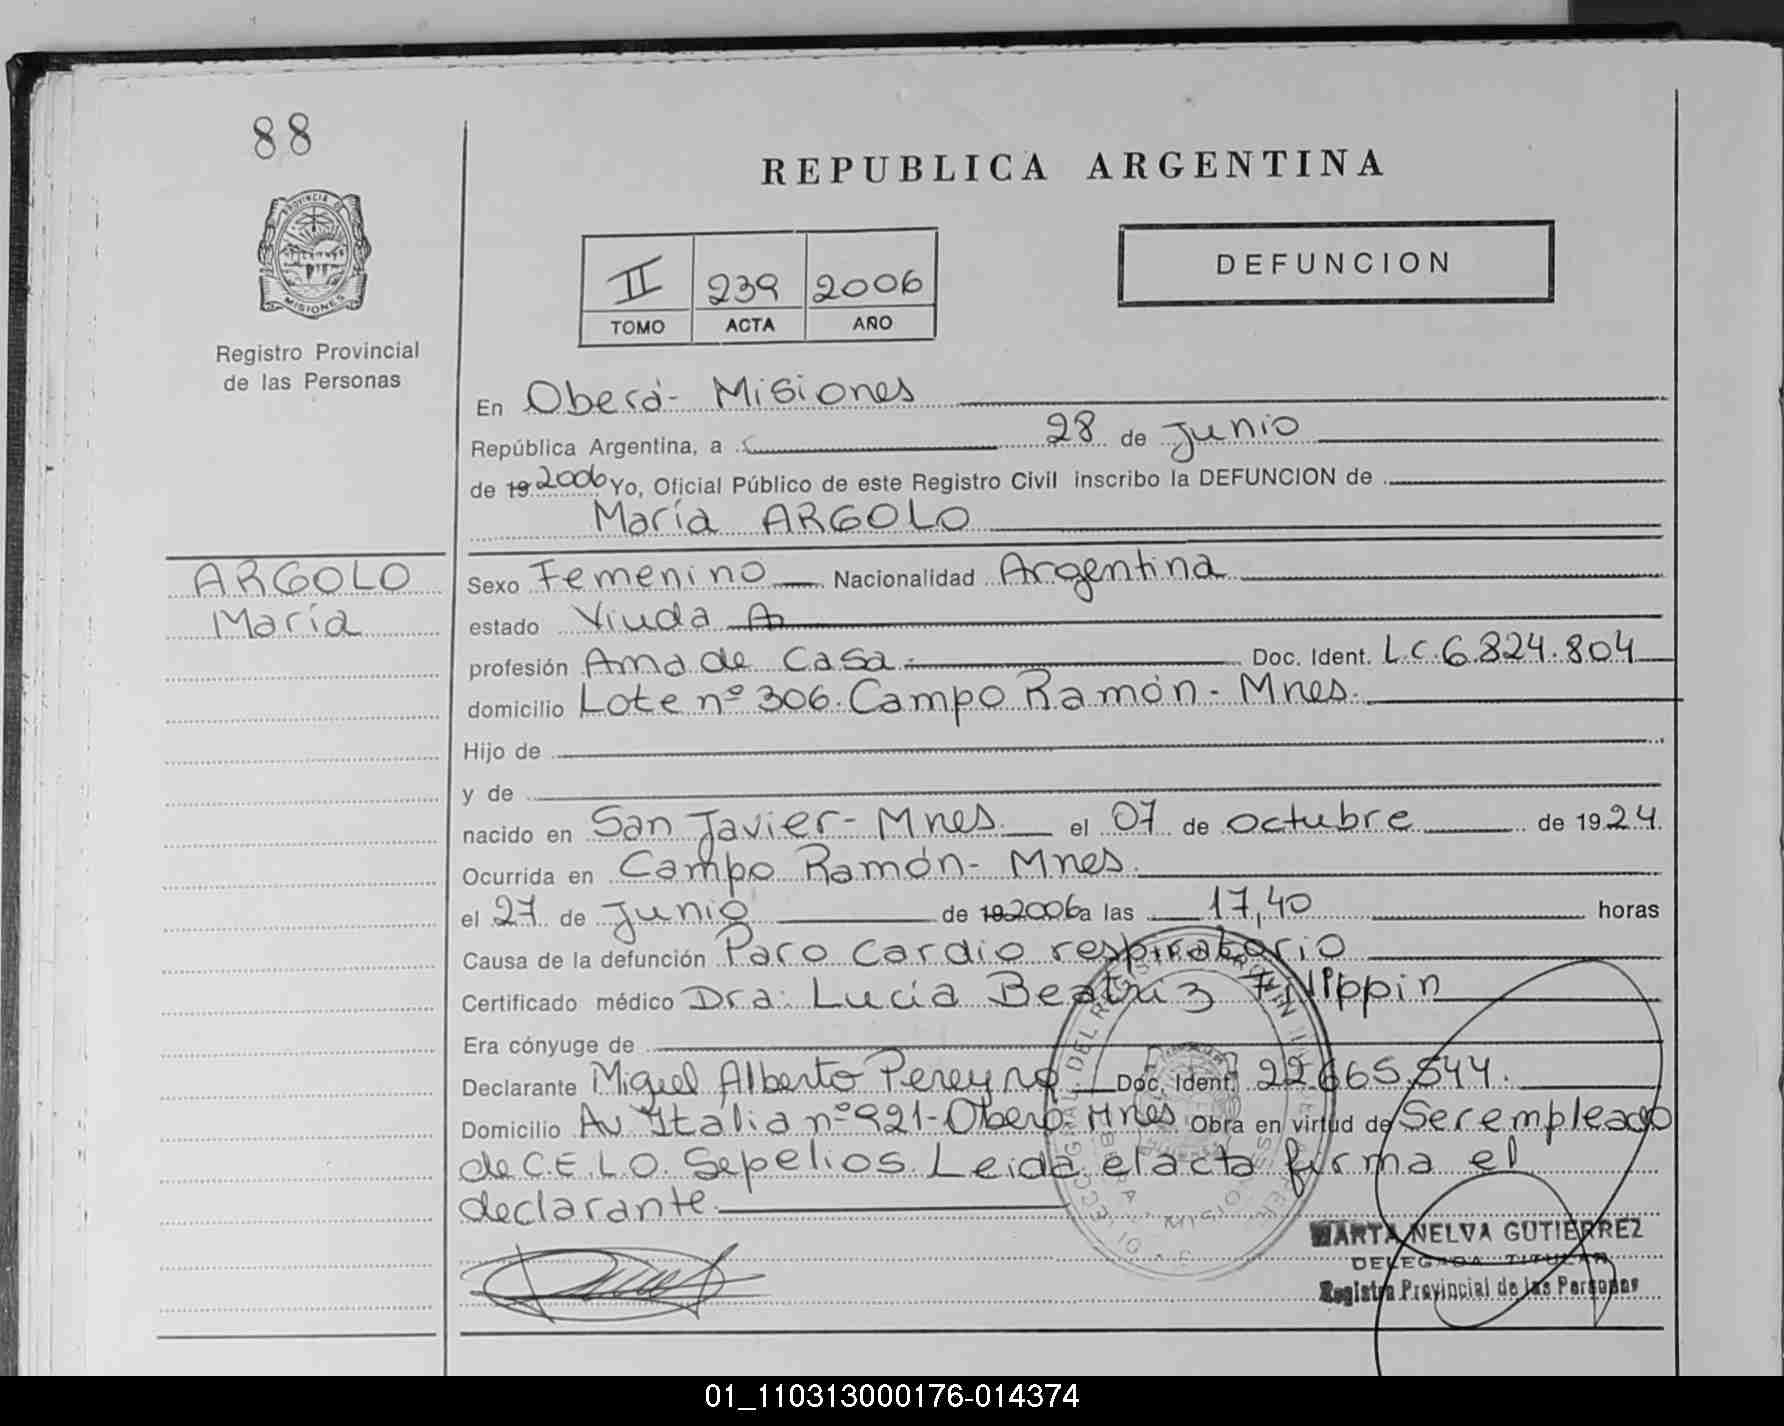 88
PROVINCIA DE
MISIONES
Registro Provincial
de las Personas
REPUBLICA ARGENTINA
II 239 2006
TOMO ACTA AÑO
DEFUNCION
En Oberá- Misiones
República Argentina, a 28 de Junio
de 19 2006 Yo, Oficial Público de este Registro Civil inscribo la DEFUNCION de
María ARGOLO
ARGOLO
María
Sexo Femenino Nacionalidad Argentina
estado Viuda
profesión Ama de Casa. Doc. Ident. L.C. 6.824.804
domicilio Lote nº 306. Campo Ramón - Mnes.
Hijo de
y de
nacido en San Javier - Mnes. el 07 de octubre de 1924.
Ocurrida en Campo Ramón - Mnes.
el 27 de Junio de 19 2006 a las 17,40 horas
Causa de la defunción Paro cardio respiratorio
Certificado médico Dra. Lucía Beatriz Filippin
Era cónyuge de
Declarante Miguel Alberto Pereyra Doc. Ident. 22.665.544.
Domicilio Av Italia nº 921- Oberá. Mnes Obra en virtud de Ser empleado
de C.E.L.O. Sepelios. Leida el acta firma el
declarante.
MARTA NELVA GUTIERREZ
DELEGADA TITULAR
Registro Provincial de las Personas
01_110313000176-014374